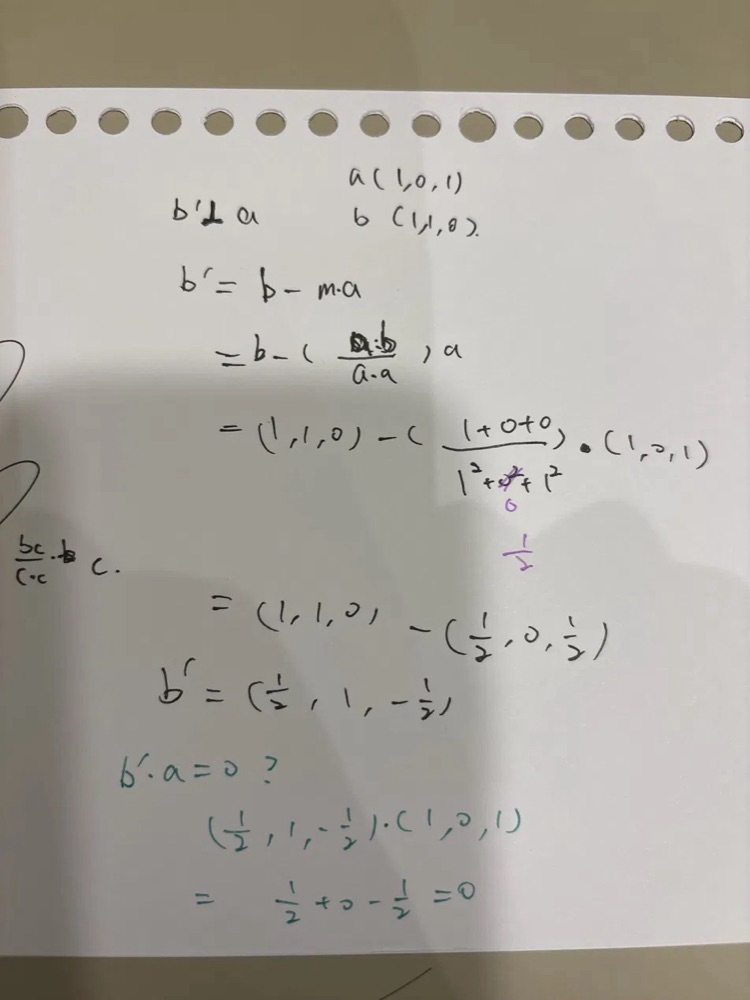 a(1,0,1)
b'⊥a b (1,1,0).
b' = b - m·a
= b - ( a·b / a·a ) a
= (1,1,0) - ( 1+0+0 / 1²+0²+1² ) · (1,0,1)
0
1/2
bc / c·c · c.
= (1,1,0) - (1/2, 0, 1/2)
b' = (1/2, 1, -1/2)
b'·a = 0 ?
(1/2, 1, -1/2)·(1,0,1)
= 1/2 + 0 - 1/2 = 0